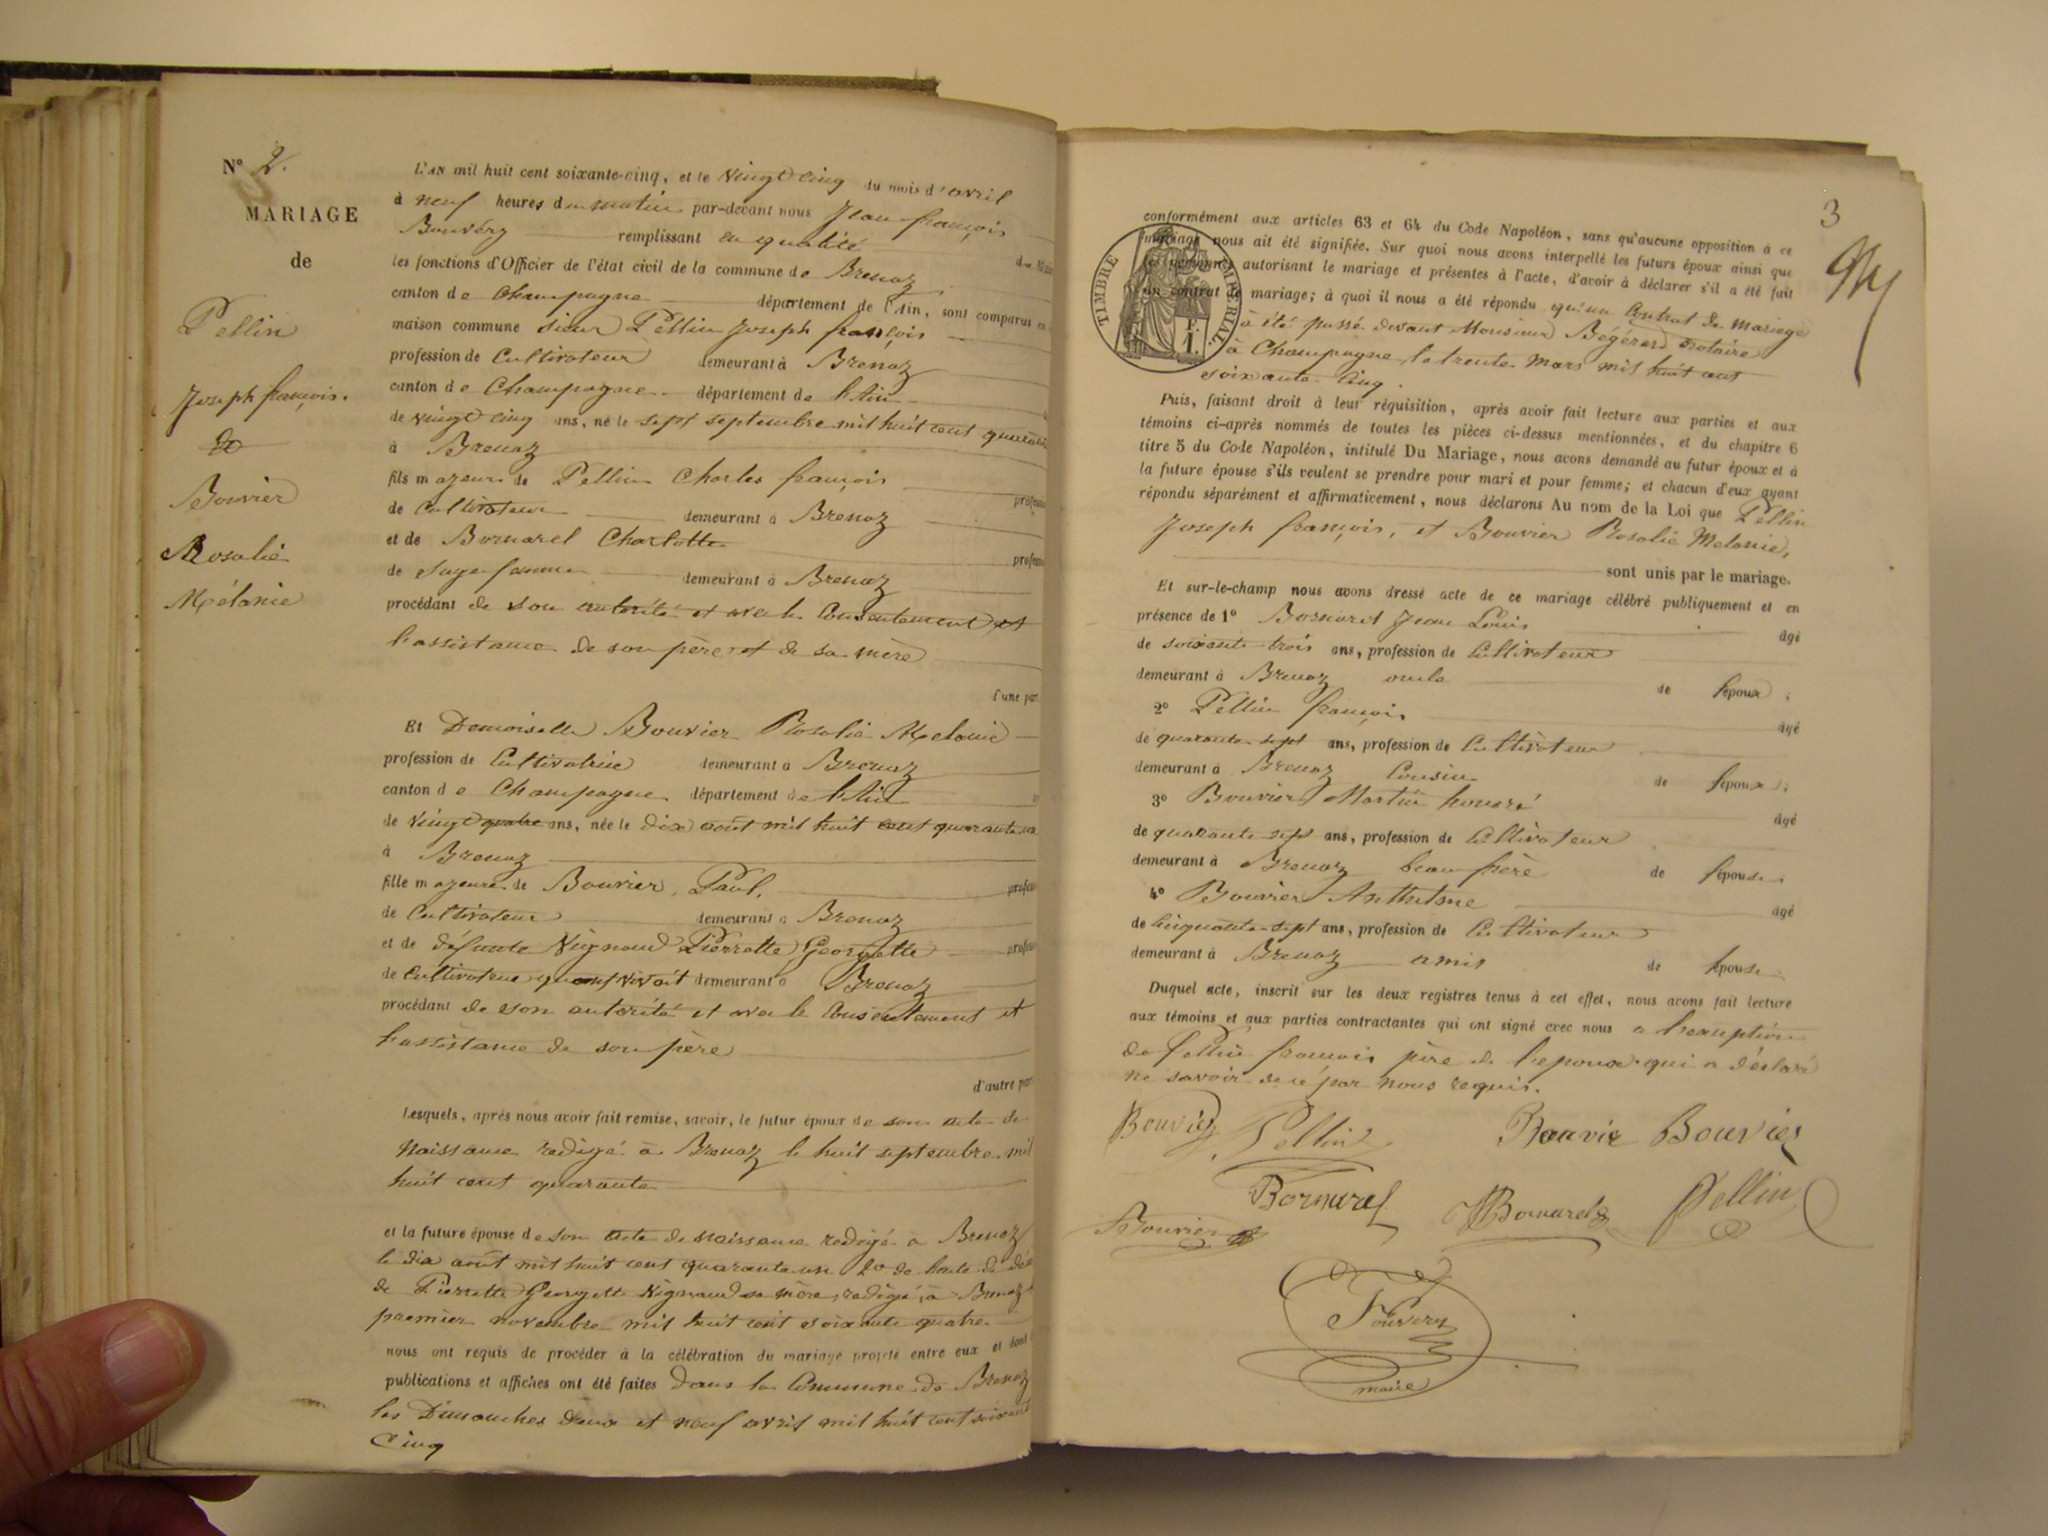 N° 2.
MARIAGE
de
Pellin
Joseph françois.
&
Bouvier
Rosalie
Mélanie
L'AN mil huit cent soixante-cinq, et le vingt cinq du mois d'avril
à neuf heures du matin par-devant nous Jean françois
Bouvéry remplissant en qualité de Maire
les fonctions d'Officier de l'état civil de la commune de Brenaz
canton de Champagne département de l'Ain, sont comparus en
maison commune sieur Pellin Joseph françois
profession de Cultivateur demeurant à Brenaz
canton de Champagne département de l'Ain
de vingt cinq ans, né le sept septembre mil huit cent quarante
à Brenaz
fils majeur de Pellin Charles françois
de Cultivateur demeurant à Brenaz
et de Bornarel Charlotte
de Sage femme demeurant à Brenaz
procédant de son autorité et avec le Consentement et
l'assistance de son père et de sa mère
d'une part
Et Demoiselle Bouvier Rosalie Melanie
profession de Cultivatrice demeurant à Brenaz
canton de Champagne département de l'Ain
de vingt quatre ans, née le dix août mil huit cent quarante un
à Brenaz
fille majeure de Bouvier Paul,
de Cultivateur demeurant à Brenaz
et de défunte Vignaud Pierrette Georgette
de Cultivateur quand vivait demeurant à Brenaz
procédant de son autorité et avec le Consentement et
l'assistance de son père
d'autre part
Lesquels, après nous avoir fait remise, savoir, le futur époux de son acte de
Naissance redigé à Brenaz le huit septembre mil
huit cent quarante
et la future épouse de son acte de naissance redigé à Brenaz
le dix août mil huit cent quarante un 2° de l'acte de décès
de Pierrette Georgette Vignaud sa mère, redigé à Brenaz
premier novembre mil huit cent soixante quatre
nous ont requis de procéder à la célébration du mariage projeté entre eux et dont
publications et affiches ont été faites dans la Commune de Brenaz
les Dimanches deux et neuf avril mil huit cent soixante
Cinq
3
conformément aux articles 63 et 64 du Code Napoléon, sans qu'aucune opposition à ce
mariage nous ait été signifiée. Sur quoi nous avons interpellé les futurs époux ainsi que
les personnes autorisant le mariage et présentes à l'acte, d'avoir à déclarer s'il a été fait
un contrat de mariage; à quoi il nous a été répondu qu'un Contrat de mariage
à été passé devant Monsieur Bégérard notaire
à Champagne le trente Mars mil huit cent
soixante Cinq.
TIMBRE IMPERIAL
1 F.
Puis, faisant droit à leur réquisition, après avoir fait lecture aux parties et aux
témoins ci-après nommés de toutes les pièces ci-dessus mentionnées, et du chapitre 6
titre 5 du Code Napoléon, intitulé Du Mariage, nous avons demandé au futur époux et à
la future épouse s'ils veulent se prendre pour mari et pour femme; et chacun d'eux ayant
répondu séparément et affirmativement, nous déclarons Au nom de la Loi que Pellin
Joseph françois, et Bouvier Rosalie Melanie,
sont unis par le mariage.
Et sur-le-champ nous avons dressé acte de ce mariage célébré publiquement et en
présence de 1° Bornarel Jean Louis âgé
de soixante trois ans, profession de Cultivateur
demeurant à Brenaz oncle de l'époux;
2° Pellin françois âgé
de quarante sept ans, profession de Cultivateur
demeurant à Brenaz Cousin de l'époux;
3° Bouvier Martin honoré âgé
de quarante sept ans, profession de Cultivateur
demeurant à Brenaz beau frère de l'épouse;
4° Bouvier Anthelme âgé
de Cinquante sept ans, profession de Cultivateur
demeurant à Brenaz amis de l'épouse
Duquel acte, inscrit sur les deux registres tenus à cet effet, nous avons fait lecture
aux témoins et aux parties contractantes qui ont signé avec nous a l'exception
de Pellin françois père de l'epoux qui a déclaré
ne savoir de ce par nous requis.
Bouvier Pellin Bouvier Bouvier
Bouvier Bornarel Bornarel Pellin
Bouvery
maire